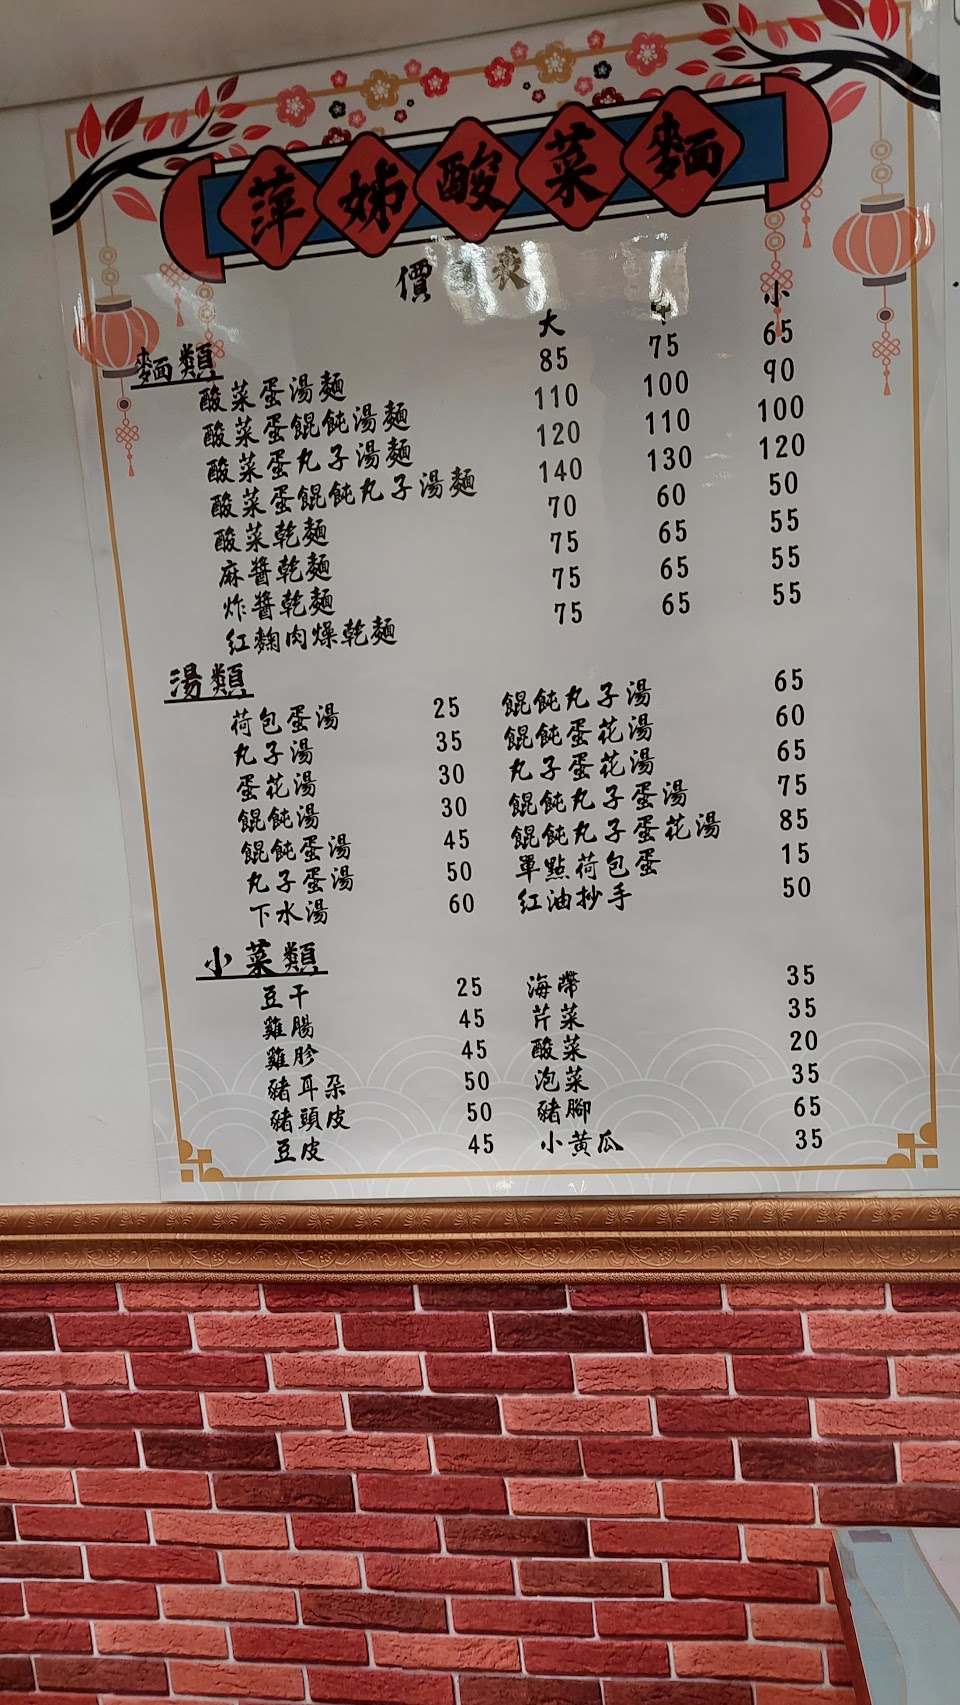 萍姊酸菜麵
價目表
大 中 小
麵類
酸菜蛋湯麵 85 75 65
酸菜蛋餛飩湯麵 110 100 90
酸菜蛋丸子湯麵 120 110 100
酸菜蛋餛飩丸子湯麵 140 130 120
酸菜乾麵 70 60 50
麻醬乾麵 75 65 55
炸醬乾麵 75 65 55
紅麴肉燥乾麵 75 65 55
湯類
荷包蛋湯 25 餛飩丸子湯 65
丸子湯 35 餛飩蛋花湯 60
蛋花湯 30 丸子蛋花湯 65
餛飩湯 30 餛飩丸子蛋湯 75
餛飩蛋湯 45 餛飩丸子蛋花湯 85
丸子蛋湯 50 單點荷包蛋 15
下水湯 60 紅油抄手 50
小菜類
豆干 25 海帶 35
雞腸 45 芹菜 35
雞胗 45 酸菜 20
豬耳朵 50 泡菜 35
豬頭皮 50 豬腳 65
豆皮 45 小黃瓜 35